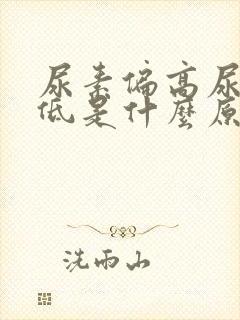 尿素偏高尿
低是什麼原
洗雨山